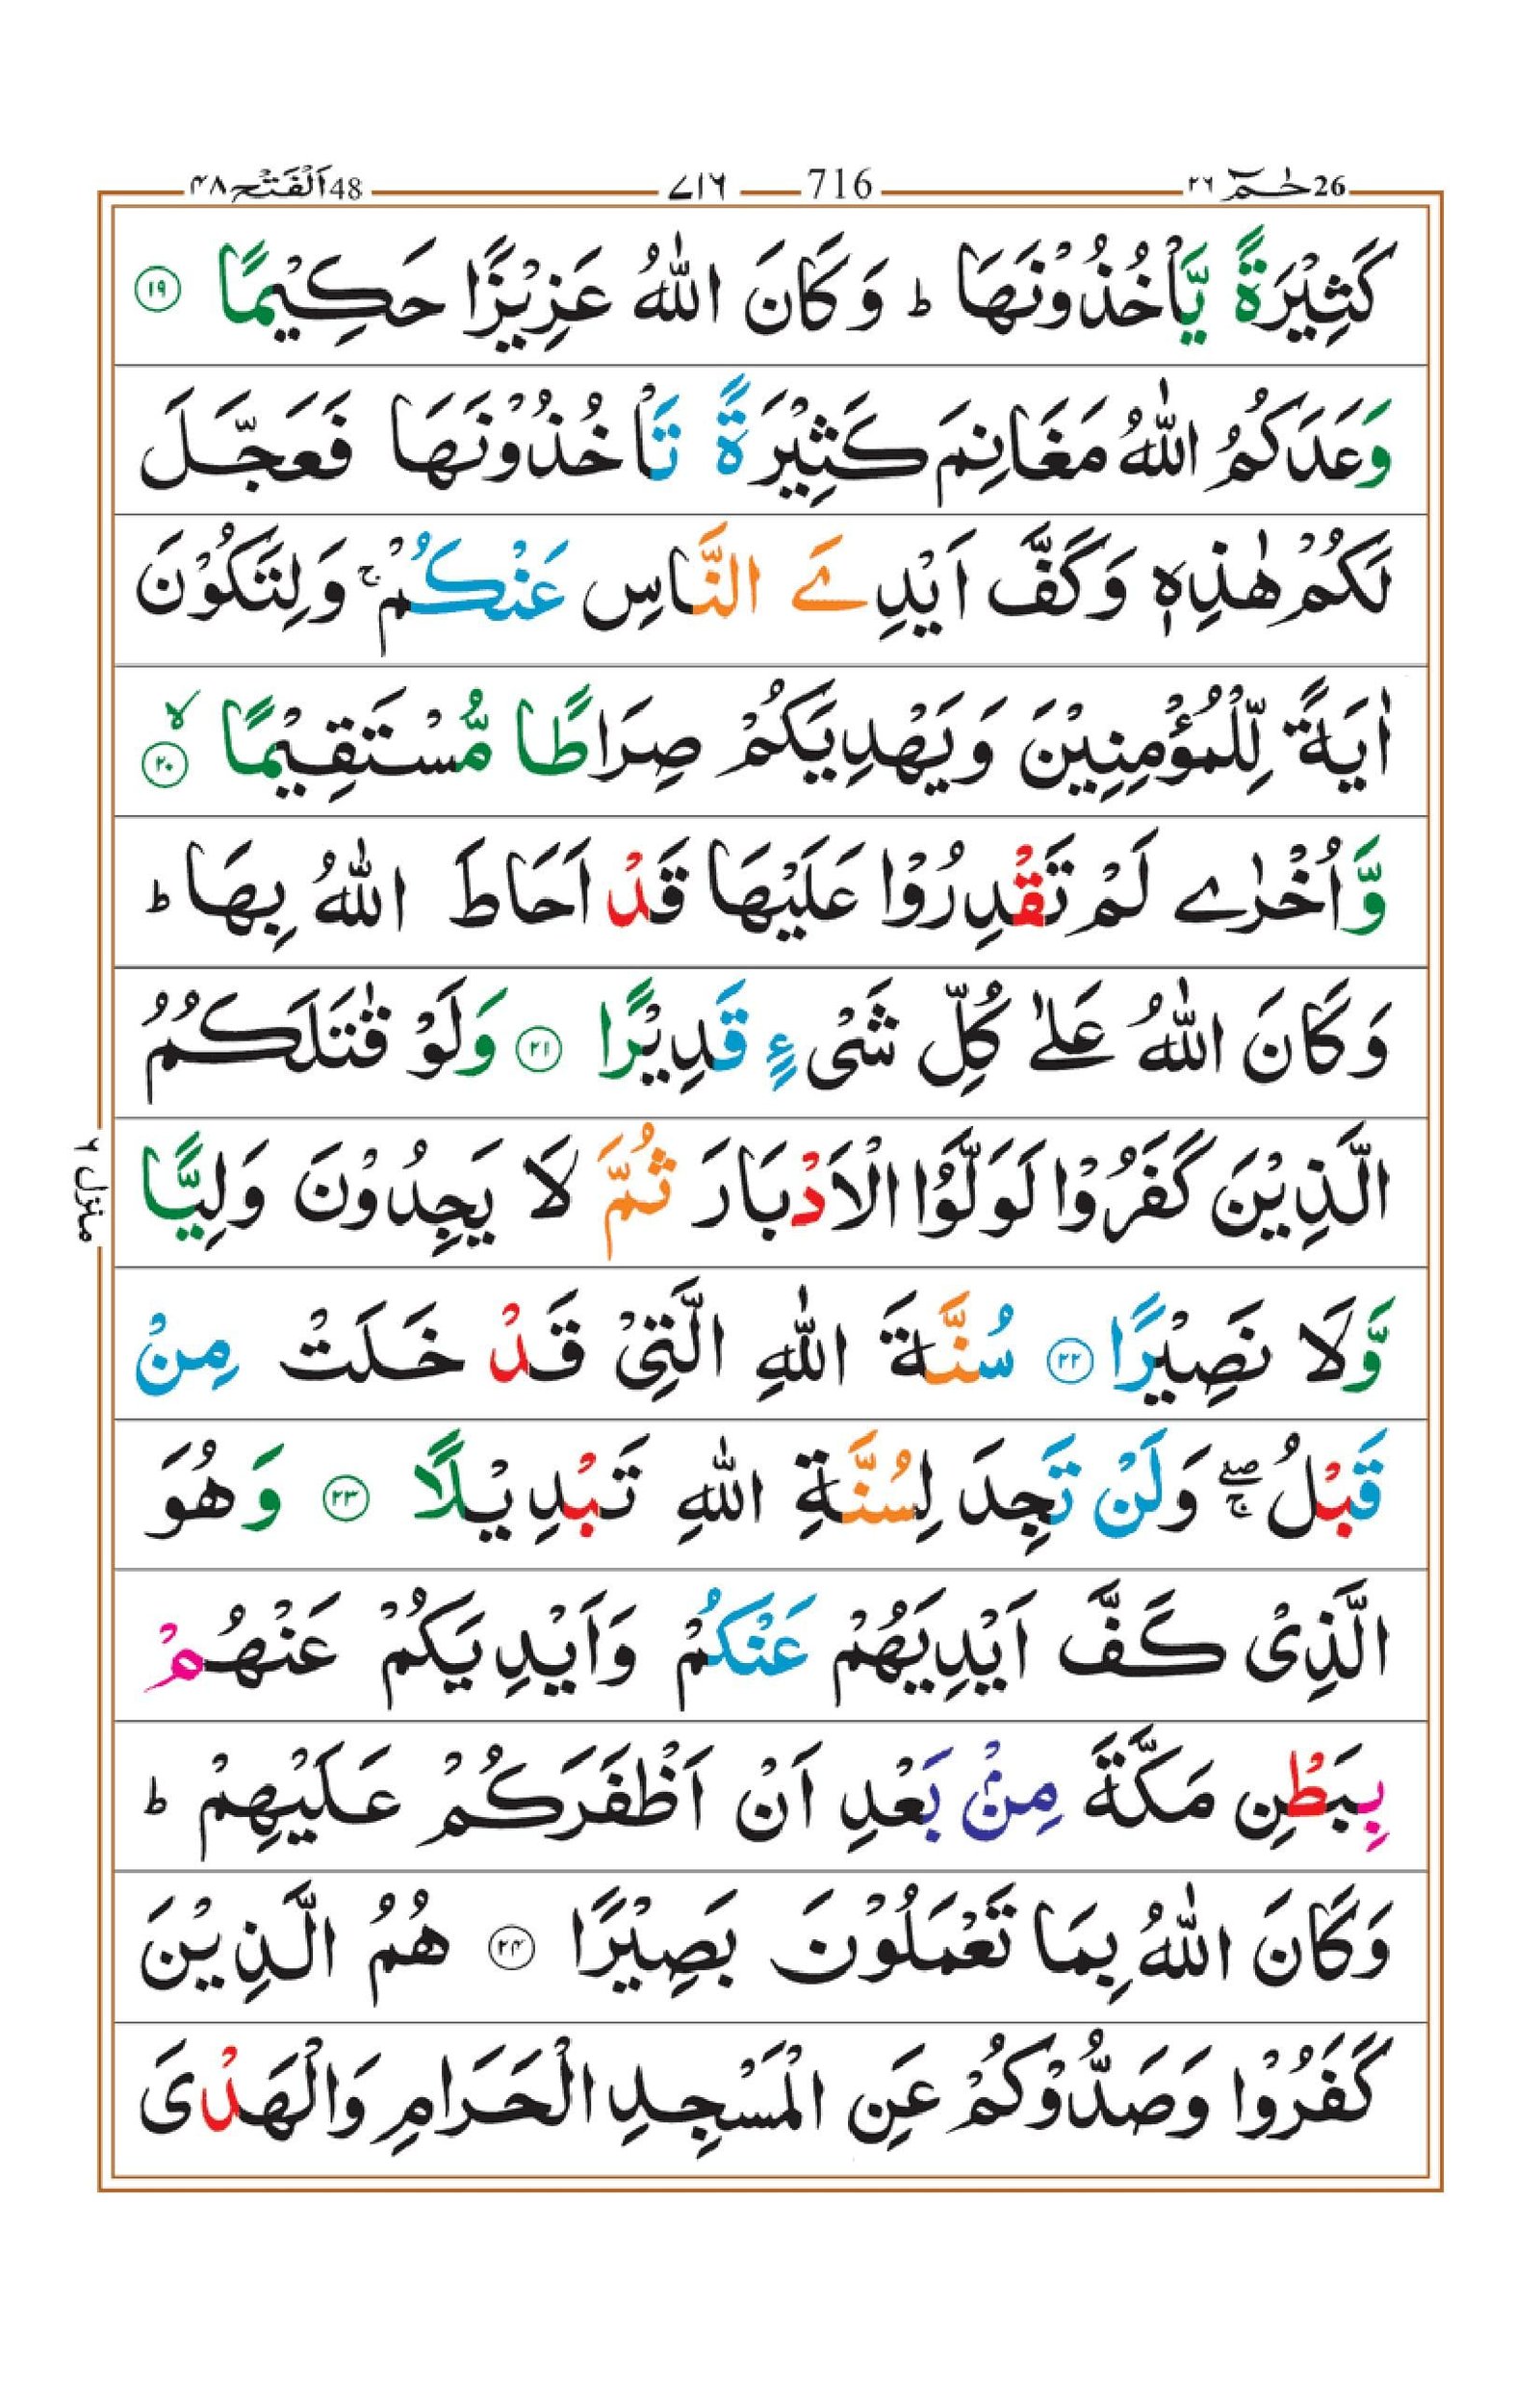 26 حٰمٓ ٢٦ 716 ٧١٦ 48 اَلْفَتْح ٤٨
كَثِيْرَةً يَّاْخُذُوْنَهَا ؕ وَكَانَ اللّٰهُ عَزِيْزًا حَكِيْمًا ١٩
وَعَدَكُمُ اللّٰهُ مَغَانِمَ كَثِيْرَةً تَاْخُذُوْنَهَا فَعَجَّلَ
لَكُمْ هٰذِهٖ وَكَفَّ اَيْدِيَ النَّاسِ عَنْكُمْ ۚ وَلِتَكُوْنَ
اٰيَةً لِّلْمُؤْمِنِيْنَ وَيَهْدِيَكُمْ صِرَاطًا مُّسْتَقِيْمًا ۙ ٢٠
وَّاُخْرٰى لَمْ تَقْدِرُوْا عَلَيْهَا قَدْ اَحَاطَ اللّٰهُ بِهَا ؕ
وَكَانَ اللّٰهُ عَلٰى كُلِّ شَىْءٍ قَدِيْرًا ٢١ وَلَوْ قٰتَلَكُمُ
الَّذِيْنَ كَفَرُوْا لَوَلَّوُا الْاَدْبَارَ ثُمَّ لَا يَجِدُوْنَ وَلِيًّا
وَّلَا نَصِيْرًا ٢٢ سُنَّةَ اللّٰهِ الَّتِىْ قَدْ خَلَتْ مِنْ
قَبْلُ ۖۚ وَلَنْ تَجِدَ لِسُنَّةِ اللّٰهِ تَبْدِيْلًا ٢٣ وَهُوَ
الَّذِىْ كَفَّ اَيْدِيَهُمْ عَنْكُمْ وَاَيْدِيَكُمْ عَنْهُمْ
بِبَطْنِ مَكَّةَ مِنْۢ بَعْدِ اَنْ اَظْفَرَكُمْ عَلَيْهِمْ ؕ
وَكَانَ اللّٰهُ بِمَا تَعْمَلُوْنَ بَصِيْرًا ٢٤ هُمُ الَّذِيْنَ
كَفَرُوْا وَصَدُّوْكُمْ عَنِ الْمَسْجِدِ الْحَرَامِ وَالْهَدْىَ
منزل ٦